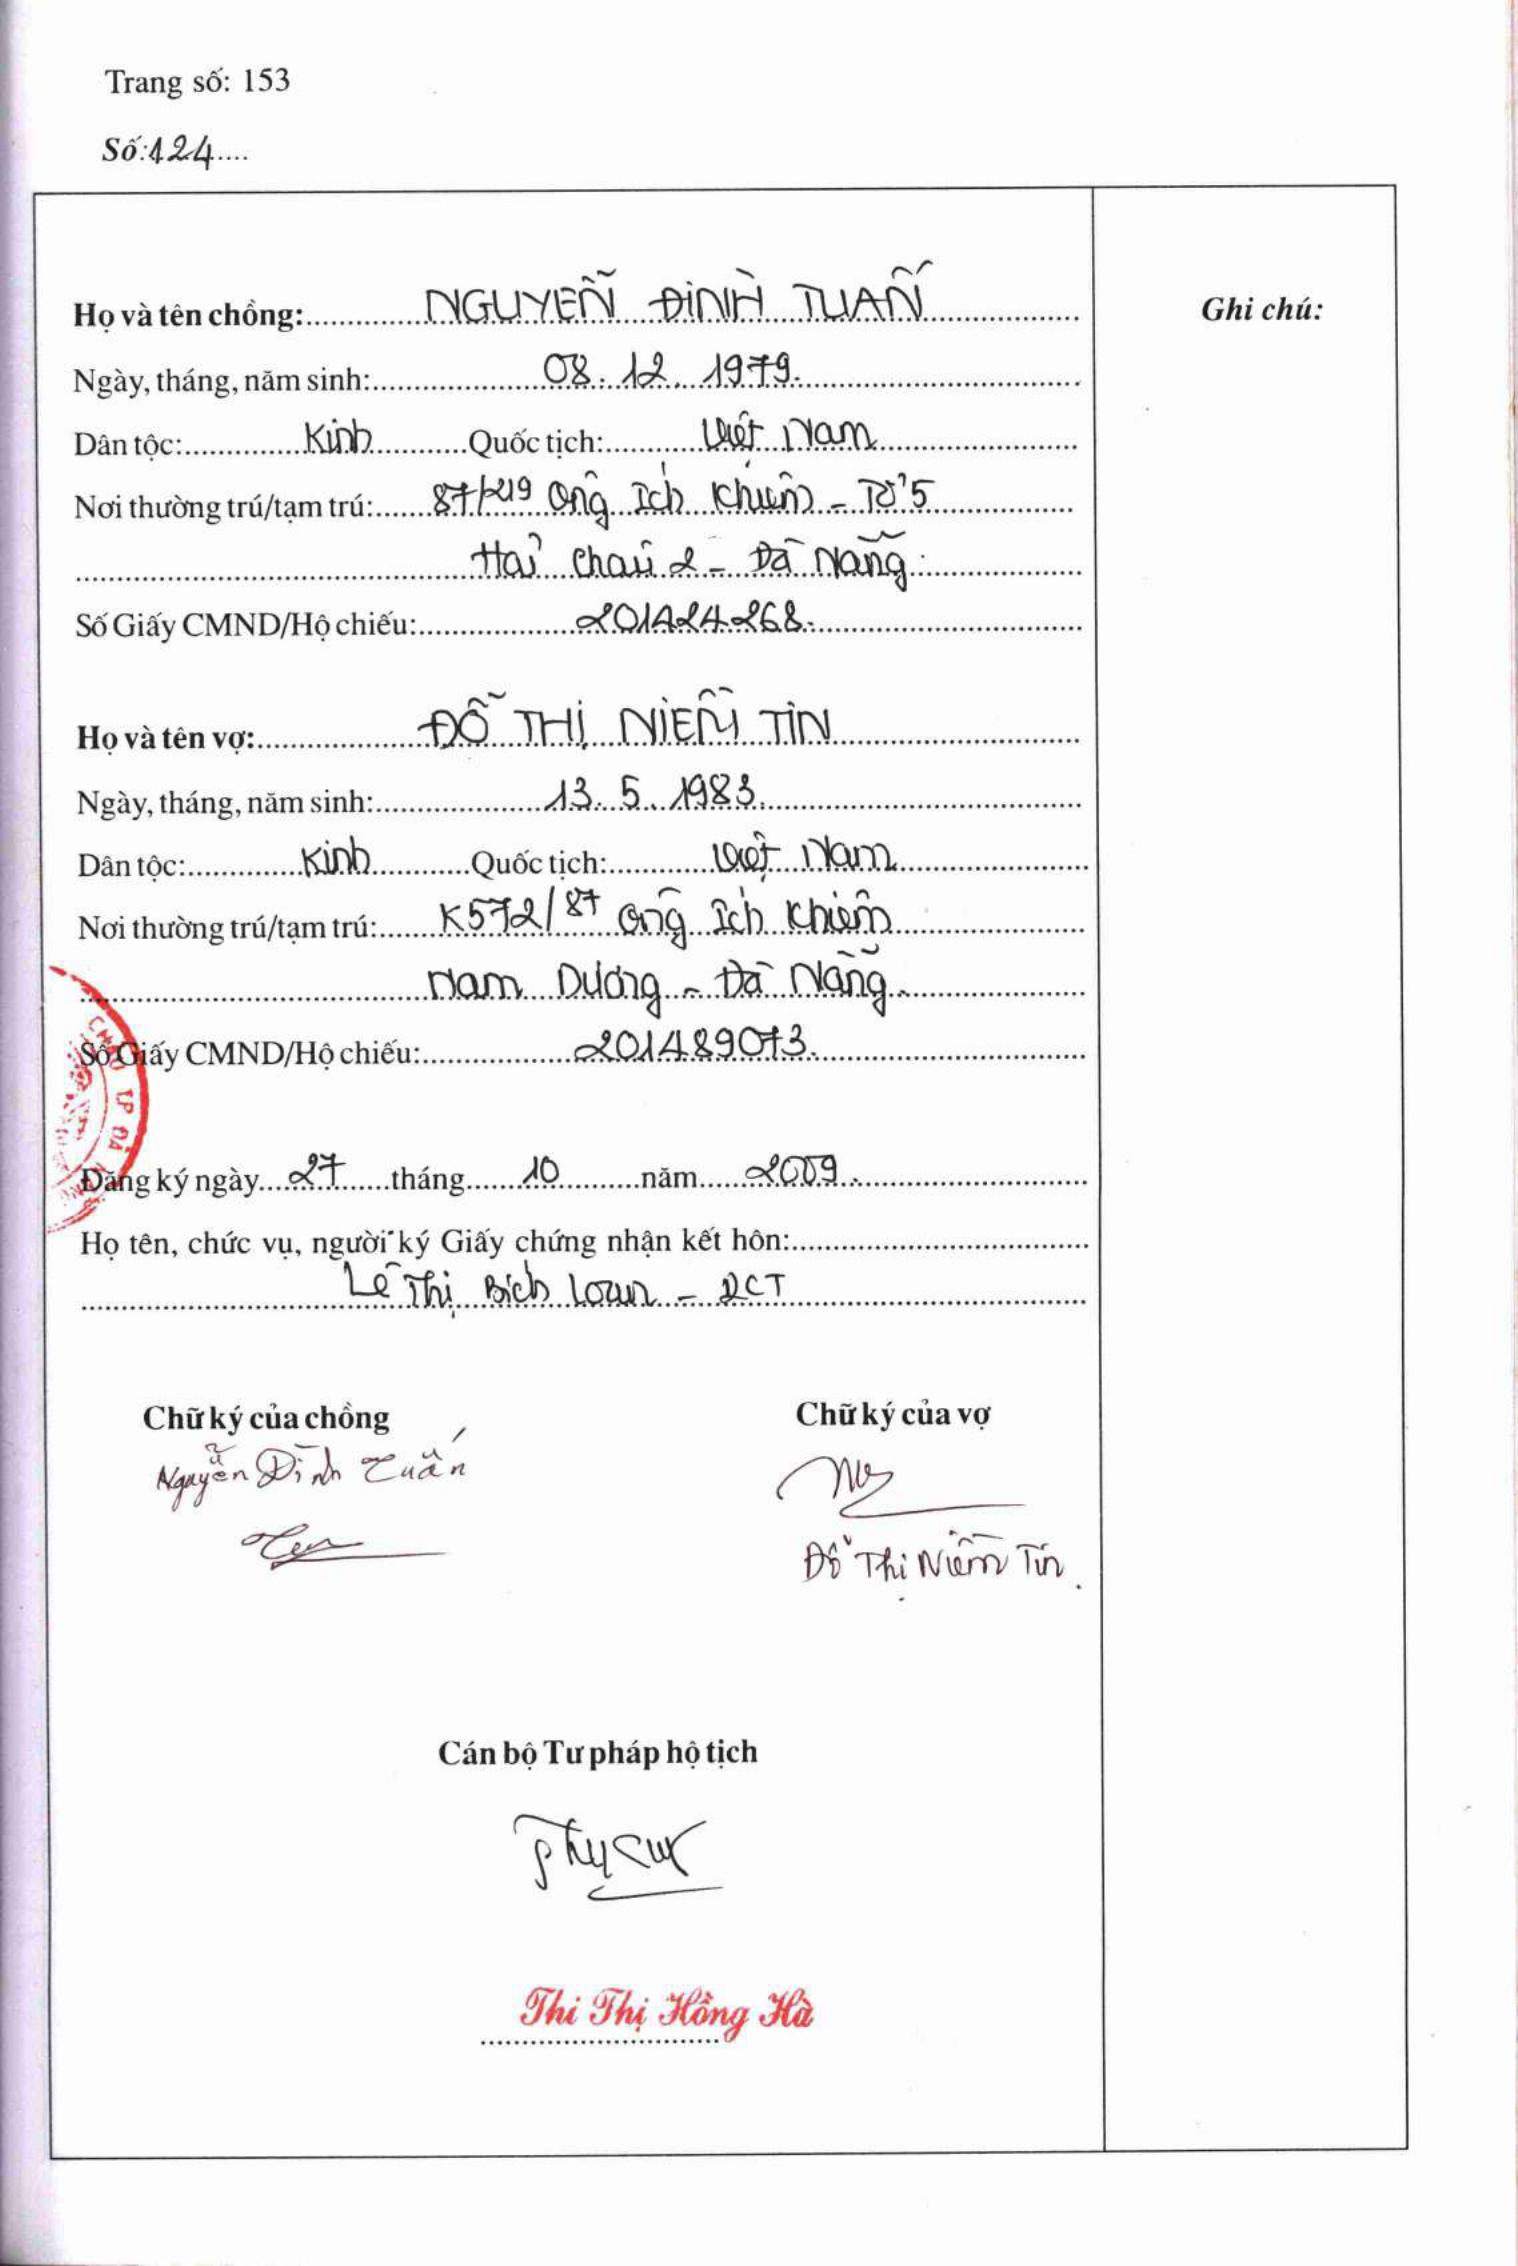 Trang số: 153
Số: 124
Họ và tên chồng: NGUYỄN ĐÌNH TUẤN
Ghi chú:
Ngày, tháng, năm sinh: 08.12.1979.
Dân tộc: Kinh Quốc tịch: Việt Nam
Nơi thường trú/tạm trú: 87/219 Ông Ích Khiêm - Tổ 5
Hải Châu 2 - Đà Nẵng
Số Giấy CMND/Hộ chiếu: 201424268.
Họ và tên vợ: ĐỖ THỊ NIỀM TIN
Ngày, tháng, năm sinh: 13.5.1983.
Dân tộc: Kinh Quốc tịch: Việt Nam
Nơi thường trú/tạm trú: K572/87 Ông Ích Khiêm
Nam Dương - Đà Nẵng.
Số Giấy CMND/Hộ chiếu: 201489073.
Đăng ký ngày 27 tháng 10 năm 2009.
Họ tên, chức vụ, người ký Giấy chứng nhận kết hôn:
Lê Thị Bích Loan - PCT
Chữ ký của chồng Chữ ký của vợ
Nguyễn Đình Tuấn
Đỗ Thị Niềm Tin.
Cán bộ Tư pháp hộ tịch
Thi Thị Hồng Hà